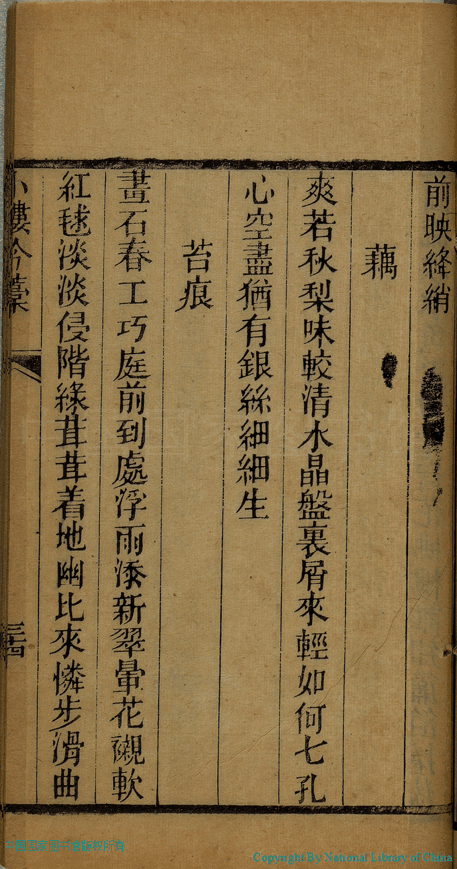 前映絳綃
藕
爽若秋梨味較清水晶盤裏屑來輕如何七孔
心空盡猶有銀絲細細生
苔痕
畫石春工巧庭前到處浮雨添新翠暈花襯軟
紅毬淡淡侵階綠茸茸着地幽比來憐步滑曲
小樓吟藁
三十四
中國國家圖書館版權所有
Copyright By National Library of China